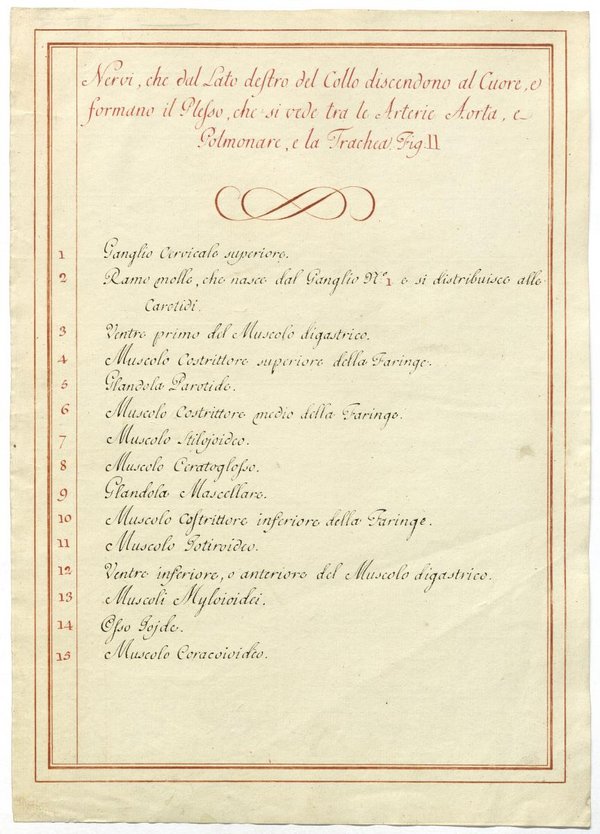 Nervi, che dal Lato destro del Collo discendono al Cuore, e
formano il Plesso, che si vede tra le Arterie Aorta, e
Polmonare, e la Trachea. Fig. II
1 Ganglio Cervicale superiore.
2 Ramo molle, che nasce dal Ganglio N.º 1 e si distribuisce alle
Carotidi.
3 Ventre primo del Muscolo digastrico.
4 Muscolo Costrittore superiore della Faringe.
5 Glandola Parotide.
6 Muscolo Costrittore medio della Faringe.
7 Muscolo Stilojoideo.
8 Muscolo Ceratoglosso.
9 Glandola Mascellare.
10 Muscolo Costrittore inferiore della Faringe.
11 Muscolo Jotiroideo.
12 Ventre inferiore, o anteriore del Muscolo digastrico.
13 Muscoli Myloioidei.
14 Osso Jojde.
15 Muscolo Coracoioideo.